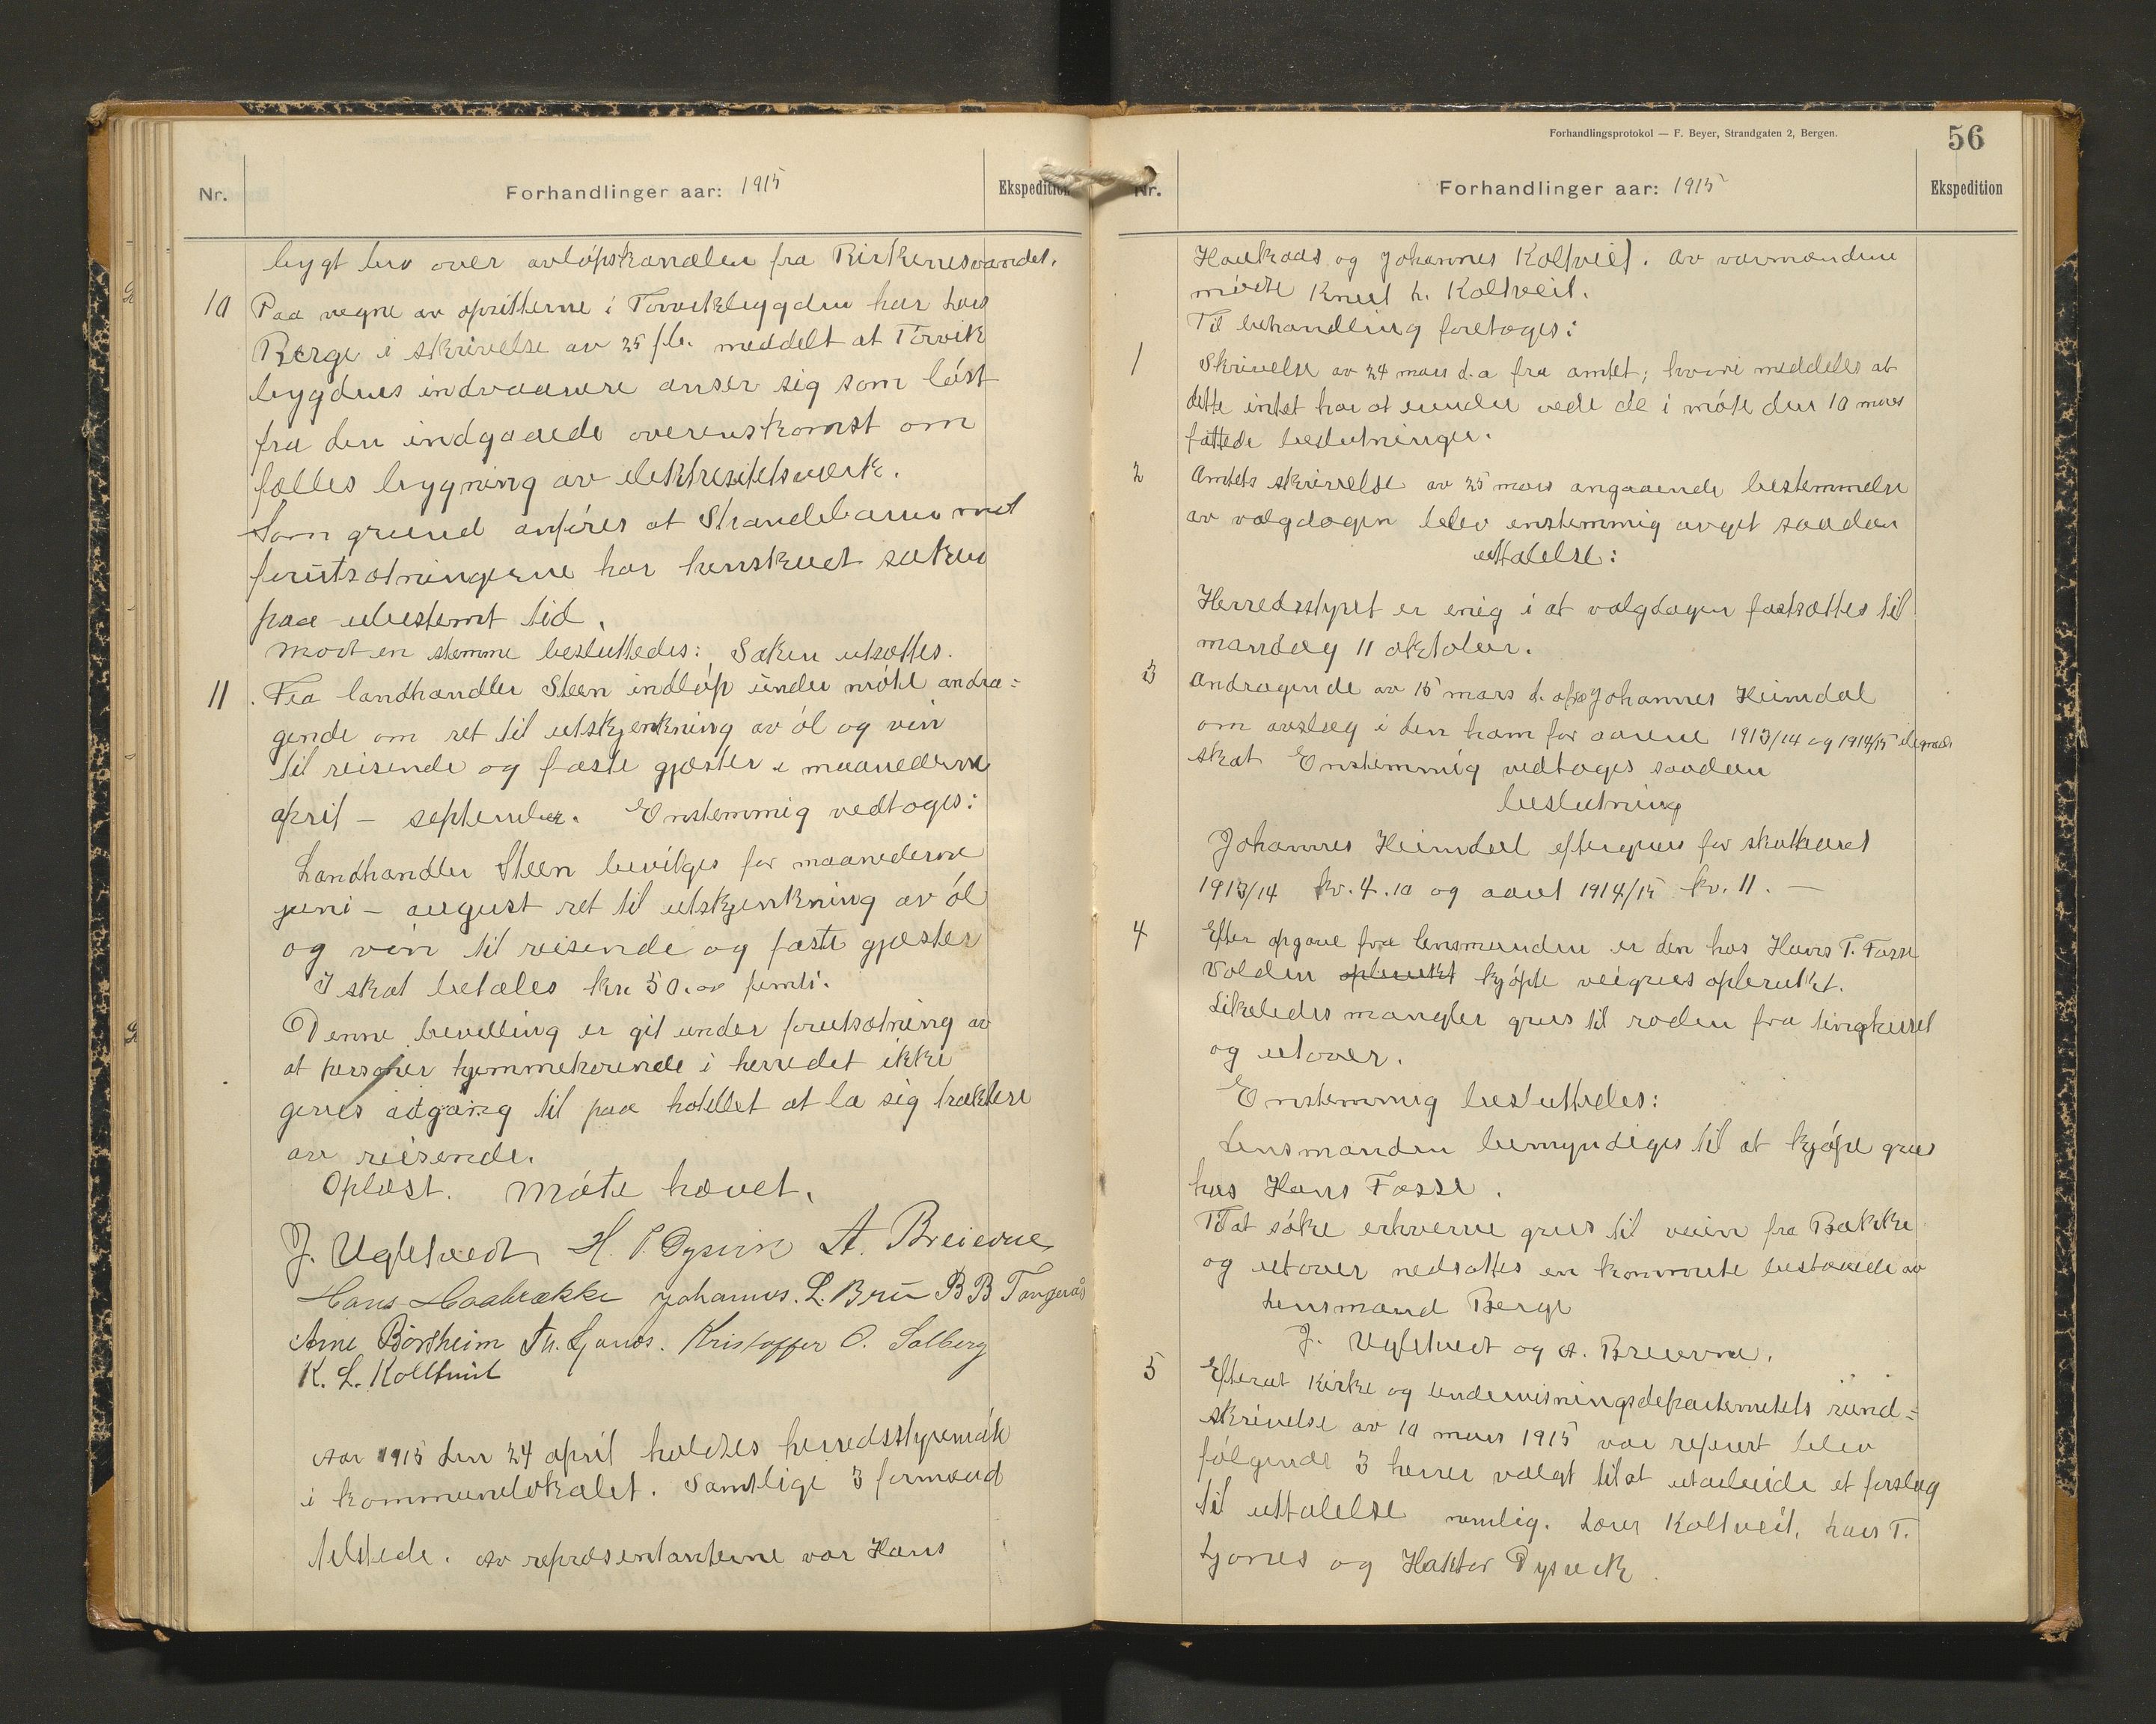 Nr.
Forhandlinger aar: 1915
Ekspedition
bygt bro over avløpskanalen fra Birkenesvandet.
10 Paa vegne av opsitterne i Torvikbygden har Lars
Berge i skrivelse av 25 f.b. meddelt at Torvik
bygdens indvaanere anser sig som løst
fra den indgaaede overenskomst om
fælles bygning av elektresitetsverk.
Som grund anføres at Strandebarm mot
forutsætningerne har henskudt saken
paa ubestemt tid.
Mot en stemme besluttedes: Saken utsættes.
11 Fra landhandler Steen indløp under møte andra=
gende om ret til utskjenkning av øl og vin
til reisende og faste gjæster i maanederne
april - september. Enstemmig vedtoges:
Landhandler Steen bevilges for maanederne
juni - august ret til utskjenkning av øl
og vin til reisende og faste gjæster
I skat betales kr. 50.00 femti.
Denne bevilling er git under forutsætning av
at personer hjemmehørende i herredet ikke
gives adgang til paa hotellet at la sig traktere
av reisende.
Oplæst. Møte hævet.
J. Ugletvedt H. T. Dysvik A. Breievne
Hans Haabrække Johannes. L. Bru B B Tangerås
Arne Børsheim Th. Ljones. Kristoffer O. Solberg
K. L. Koltveit
Aar 1915 den 24 april holdtes herredsstyremøte
i kommunelokalet. Samtlige 3 formænd
tilstede. Av repræsentanterne var Hans
Forhandlingsprotokol — F. Beyer, Strandgaten 2, Bergen.
56
Nr.
Forhandlinger aar: 1915
Ekspedition
Haukaas og Johannes Koltveit. Av varmændene
møtte Knut L. Koltveit.
Til behandling foretoges:
1 Skrivelse av 24 mars d.a fra amtet; hvori meddeles at
dette intet har at eundre vede de i møte den 10 mars
fattede beslutninger.
2 Amtets skrivelse av 25 mars angaaende bestemmelse
av valgdagen blev enstemmig avgit saadan
uttalelse:
Herredsstyret er enig i at valgdagen fastsættes til
mandag 11 oktober.
3 Andragende av 15 mars d. a fra Johannes Heimdal
om avslag i den ham for aarene 1913/14 og 1914/15 ilignede
skat Enstemmig vedtoges saadan
beslutning
Johannes Heimdal eftergives for skatteaaret
1913/14 kr. 4.10 og aaret 1914/15 kr. 11. —
4 Efter opgave fra lensmanden er den hos Hans T. Fosse
Volden opbrukt kjøpte veigrus opbrukt.
Likeledes mangler grus til roden fra tinghuset
og utover.
Enstemmig besluttedes:
Lensmanden bemyndiges til at kjøpe grus
hos Hans Fosse.
Til at søke erhverve grus til veien fra Bække
og utover nedsattes en komite bestaaende av
Lensmand Berge
J. Ugletvedt og A. Breievne.
5 Efterat Kirke og undervisningsdepartemetets rund=
skrivelse av 10 mars 1915 var referert blev
følgende 3 herrer valgt til at utarbeide et forslag
til uttalelse nemlig. Lars Koltveit, Lars T.
Ljones og Haktor Dysvik.